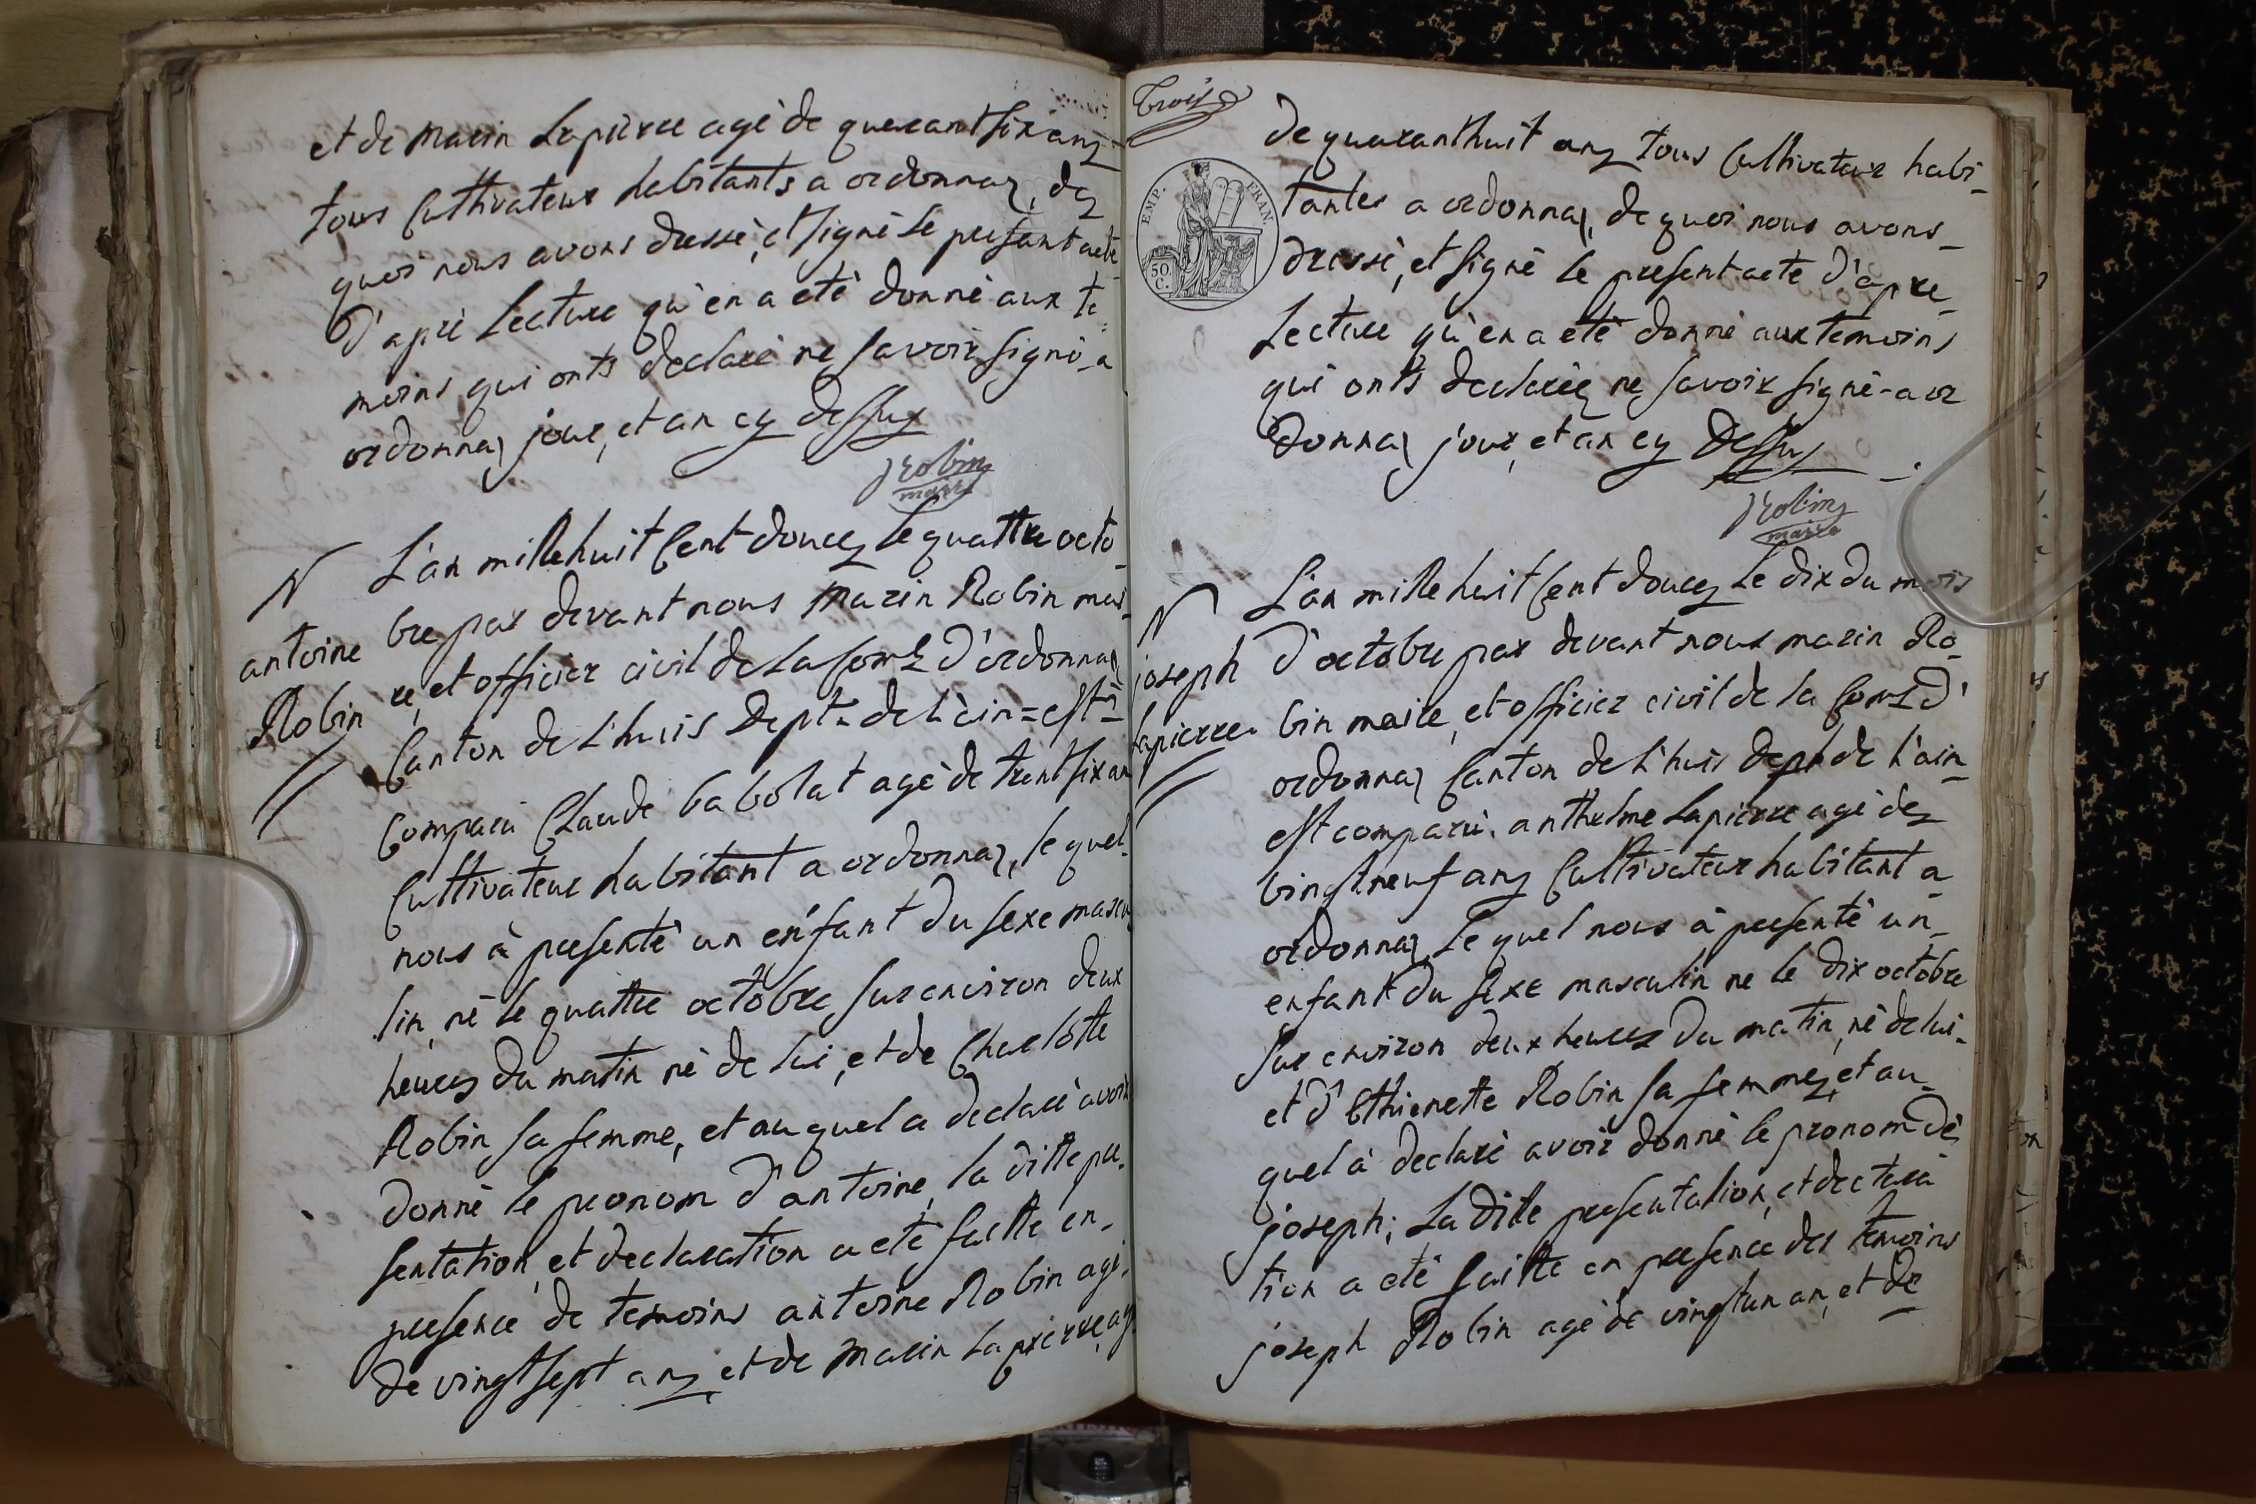 et de marin Lapierre agé de quarantsix ans
tous Cultivateur habitants a ordonnaz, de
quoi nous avons dressé, et signé le presant acte
d'apré Lecture qu'en a eté donné aux te
moins qui onts declaré ne savoir signé a
ordonnaz jour, et an cy dessus
Robin
maire
N
antoine
Robin
L'an mille huit Cent douce, le quattre octo
bre par devant nous marin Robin mai
re, et officier civil de la Com.e d'ordonnaz
Canton de L'huis Dept. de L'ein = est =
Comparu Claude babolat agé de trentsix an
Cultivateur habitant a ordonnaz, le quel
nous à presenté un enfant du sexe mascu
lin, né le quattre octobre sur environ deux
heures du matin né de lui, et de Charlotte
Robin sa femme, et au quel a declaré avoir
donné le pronom d'antoine, la ditte pre
sentation, et declaration a eté faitte en
presence de temoins antoine Robin agé
de vingtsept ans, et de marin Lapierre, agé
Trois
EMP. FRAN.
50 C.
de quaranthuit ans tous Cultivateur habi
tantes a ordonnaz, de quoi nous avons
dressé, et signé le present acte d'apre
Lecture qu'en a eté donné aux temoins
qui onts declarée ne savoir signé - a or
donnaz jour, et an cy dessus
Robin
maire
N
joseph
Lapierre
L'an mille huit Cent douce, le dix du mois
d'octobre par devant nous marin Ro
bin maire, et officier civil de la Com.e d'
ordonnaz Canton de L'huis Dept. de L'ain
est comparu. anthelme Lapierre agé de
vingtneuf ans Cultivateur habitant a
ordonnaz, le quel nous à presenté un
enfant du sexe masculin né le dix octobre
sur environ deux heures du matin, né de lui
et d'Ethienette Robin sa femme, et au
quel à declaré avoir donné le pronom de
joseph; La ditte presentation, et declara
tion a eté faitte en presence des temoins
joseph Robin agé de vingtun an, et de